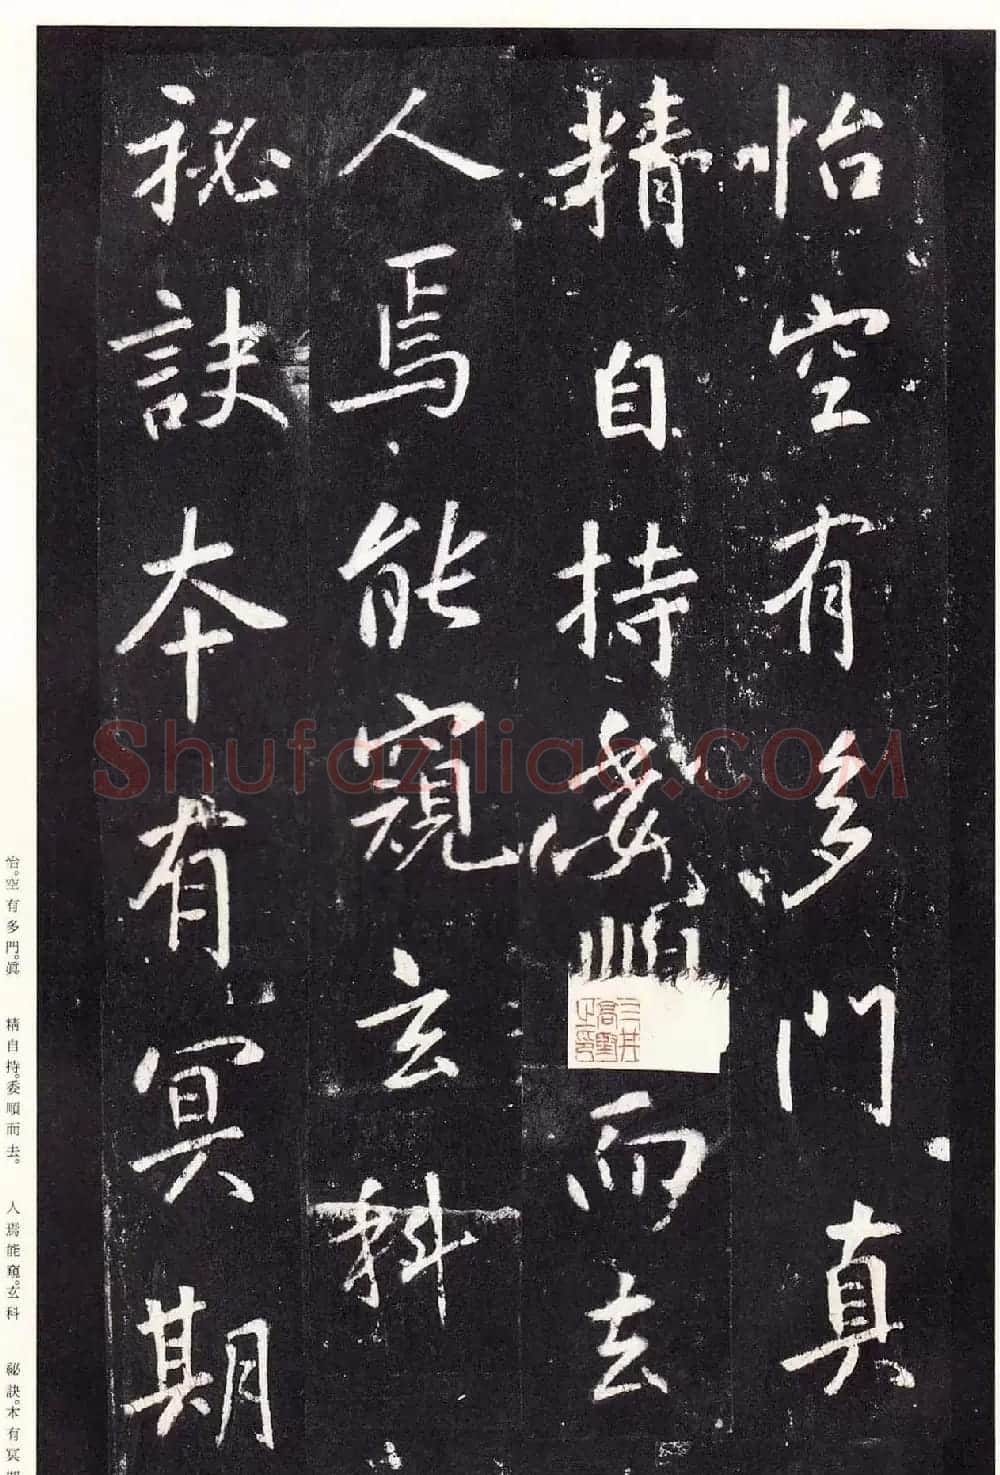 怡空有多門真
精自持委順而去
人焉能窺玄科
秘訣本有冥期
Shufaziliao.COM
怡。空有多門。眞　精自持。委順而去。　人焉能窺。玄科　祕訣。本有冥期